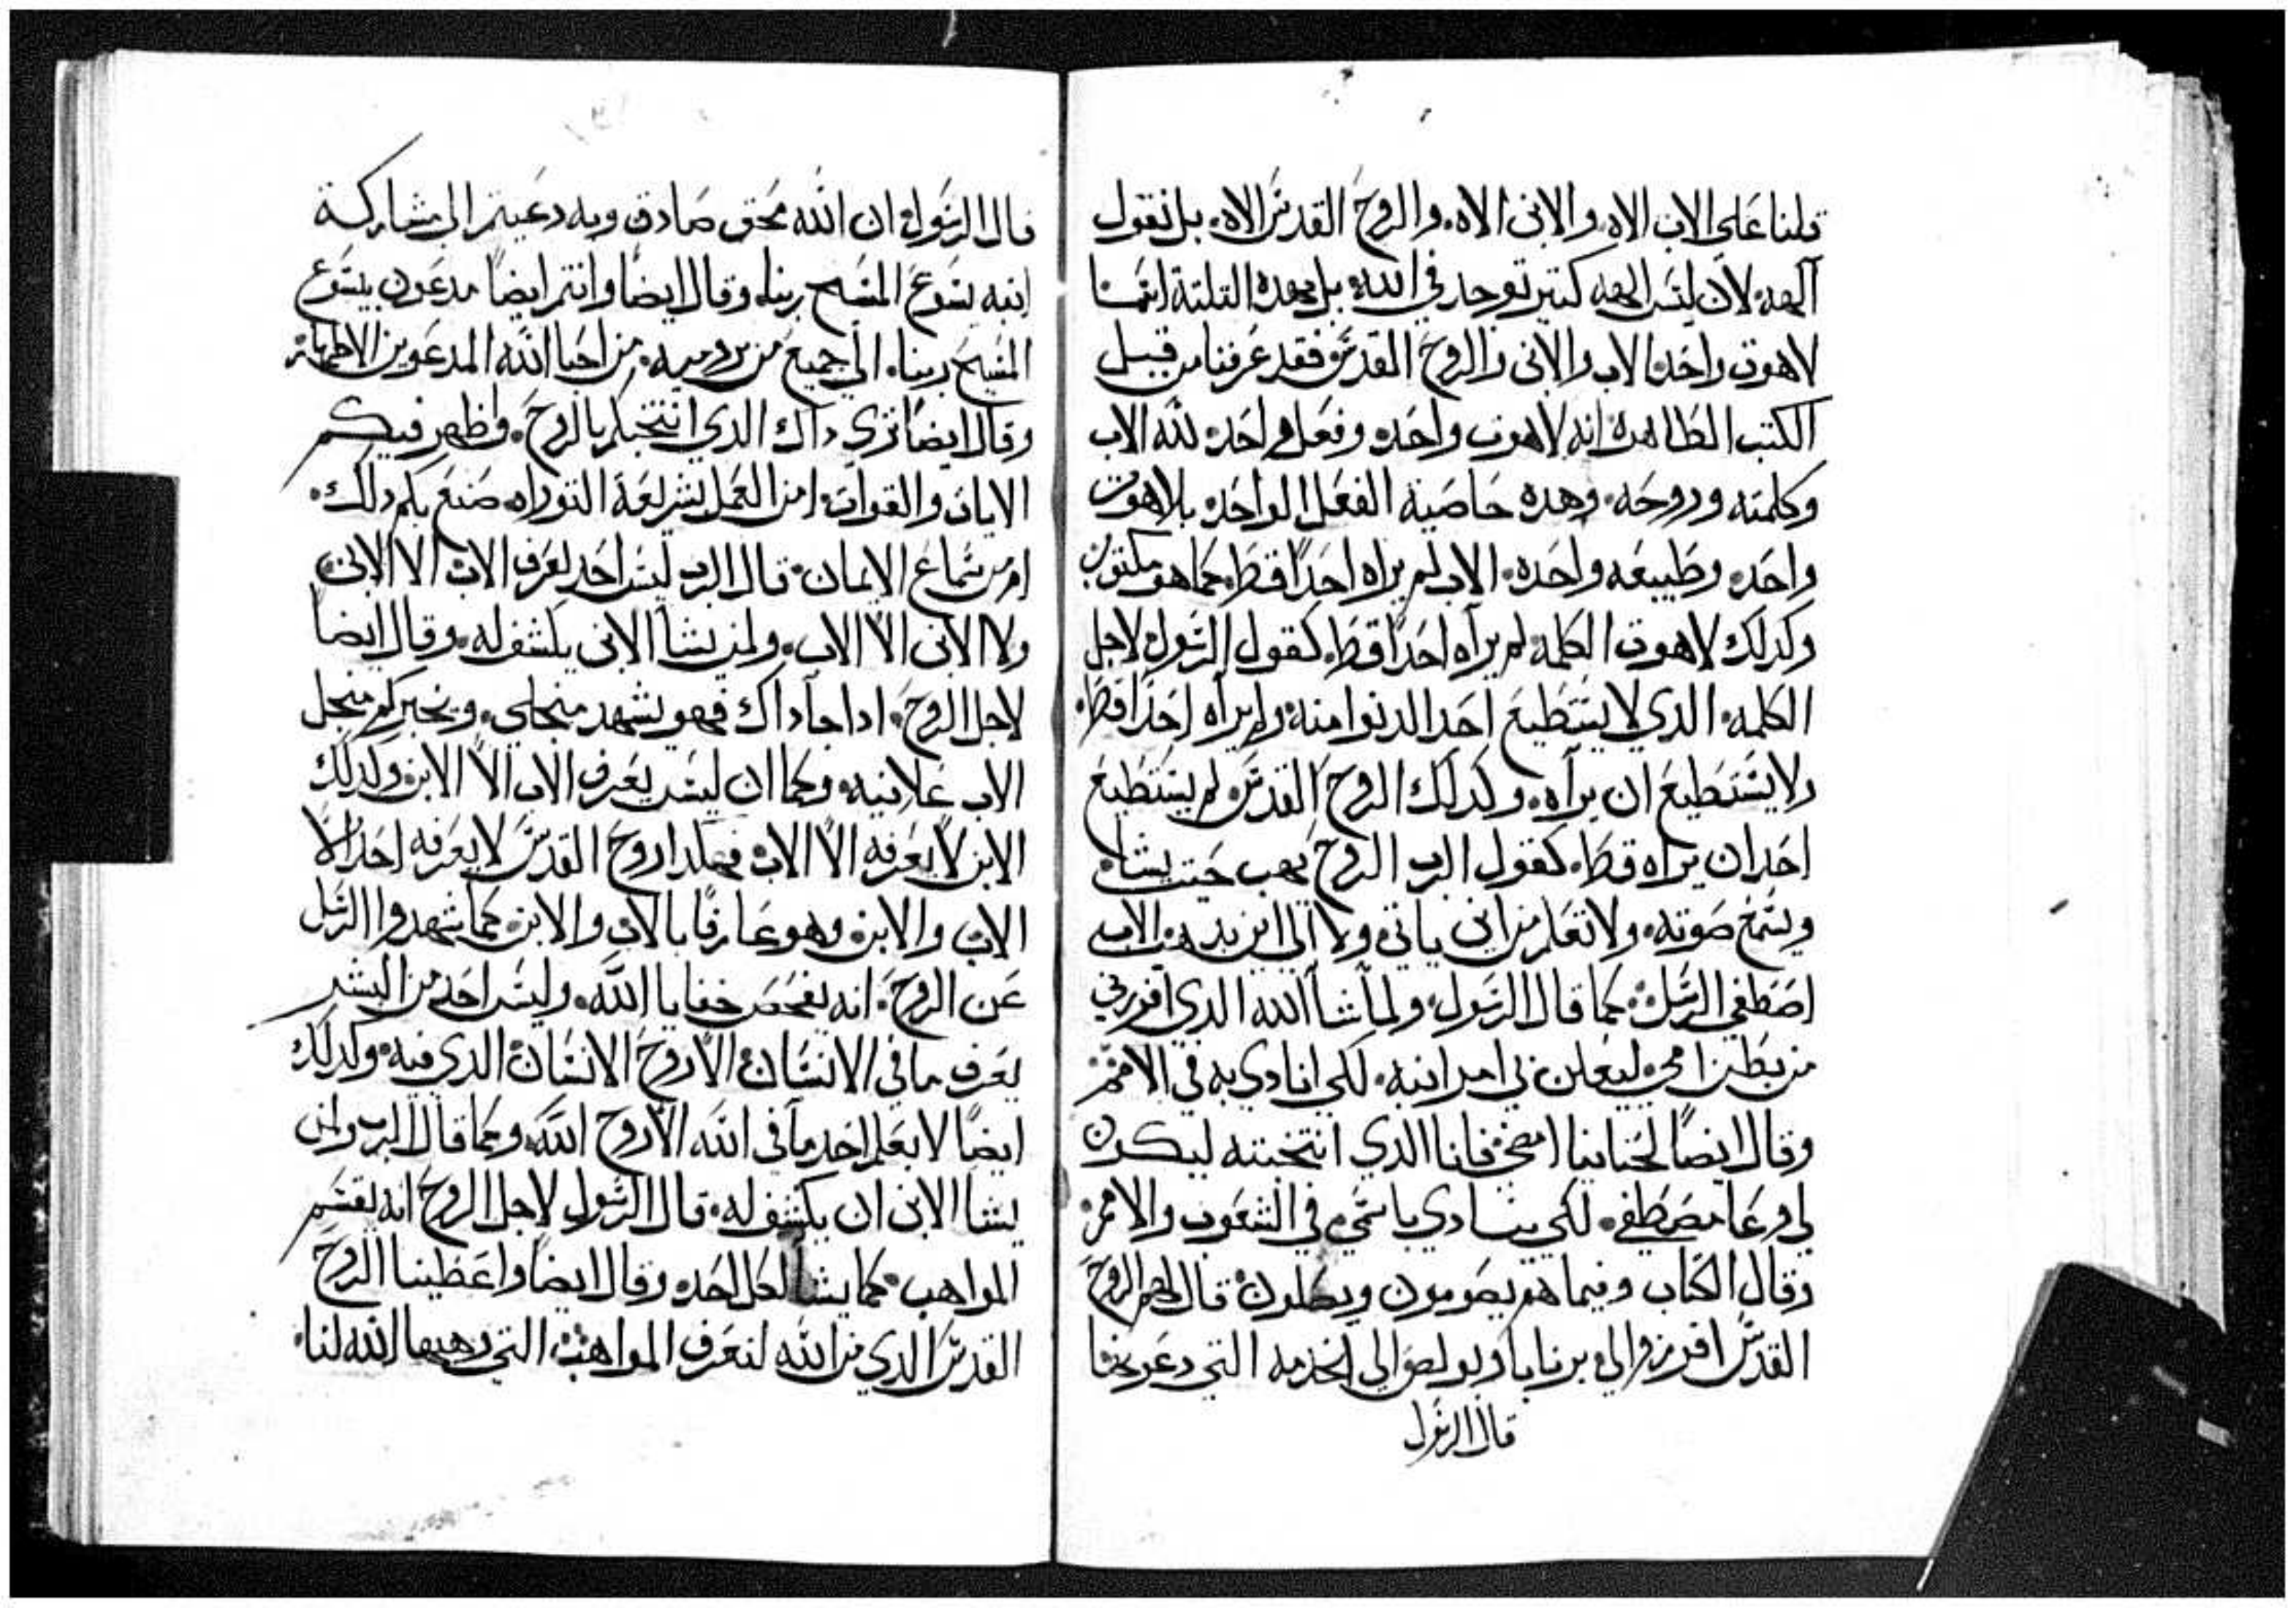 قلنا على الاب الاه. والابن الاه. والروح القدس الاه. بل نقول
آلهه. لان ليس الهه كتير توجد في الله. بل بهده التلتة ايضا
لاهوت واحد. الاب والابن والروح القدس فقد عرفنا من قبل
الكتب الطاهره انه لاهوت واحد. وفعل واحد. لله الاب
وكلمته وروحه. وهده خاصية الفعل الواحد. بلاهوت
واحد. وطبيعه واحده. الاب لم يراه احدًا قط. كما هو مكتوب
وكدلك لاهوت الكلمه لم يراه احدًا قط. كقول الرسول لاجل
الكلمه. الدي لا يستطيع احد الدنوا منه. ولم يراه احدًا قط.
ولا يستطيع ان يراه. وكدلك الروح القدس لم يستطيع
احد ان يراه قط. كقول الرب الروح يهب حيت يشاء
وتسمع صوته. ولا تعلم من اين ياتي. ولا الى اين يدهب. الاب
اصطفى الرسل. كما قال الرسول. ولما شاالله الدي افرزني
من بطن امي. ليعلن بي امر ابنه. لكي انادي به في الامم
وقال ايضًا لحنانيا امضي فانا الدي انتخبته ليكون
لي وعا مصطفى. لكي ينادي باسمي في الشعوب والامم.
وقال الكتاب وفيما هم يصومون ويصلون. قال لهم الروح
القدس افرزوا لي برنابا وبولص الي الخدمه التي دعوتهما
قال الرسول
قال الرسول ان الله محق صادق وبه دعيتم الى مشاركة
ابنه يسوع المسيح ربنا. وقال ايضًا وانتم ايضًا مدعون بيسوع
المسيح ربنا. الى جميع من بروميه. من احبا الله المدعوين الاطهار
وقال ايضًا ترى داك الدي انتخبكم بالروح. واظهر فيكم
الايات والقوات. امن العمل بشريعة التوراه. صنع بكم دلك.
ام من سماع الايمان. قال الرب ليس احد يعرف الاب الا الابن
ولا الابن الا الاب. ولمن يشا الابن يكشف له. وقال ايضًا
لاجل الروح. ادا جا داك فهو يشهد منجلي. ويخبركم منجل
الاب علانيه. وكما ان ليس يعرف الاب الا الابن. وكدلك
الابن لا يعرفه الا الاب. فهكدا روح القدس لا يعرفه احد الا
الاب والابن. وهو عارفًا بالاب والابن. كما شهدوا الرسل
عن الروح. انه يفحص خفايا الله. وليس احد من البشر
يعرف ما في الانسان الا روح الانسان الدي فيه. وكدلك
ايضًا لا يعلم احد ما في الله الا روح الله. وكما قال الرب ولمن
يشا الابن ان يكشف له. قال الرسول لاجل الروح انه يقسم
المواهب. كما يشا لكل احد. وقال ايضًا واعطينا الروح
القدس الدي من الله لنعرف المواهب التي وهبها الله لنا.